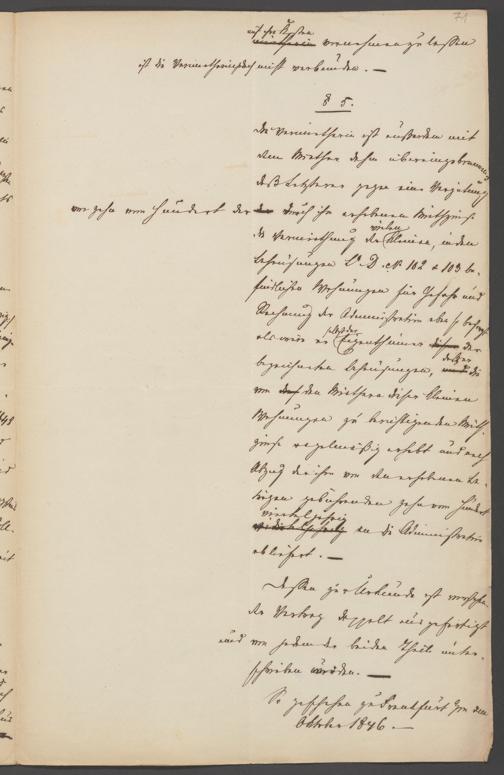 71
auf ihre Kosten
vornehmen zu lassen
ist die Vermietherin doch nicht verbunden. —
§ 5.
Die Vermietherin ist außerdem mit
dem Miether dahin übereingekommen
daß Letzterer gegen eine Vergütung
von zehn vom Hundert der durch ihn erhobenen Miethzinse
die Vermiethung der vielen kleinen, in den
Behausungen Lit. D. № 102 & 103 be-
findlichen Wohnungen für Gefahr und
Rechnung der Administration eben so besorgt
als wäre er selbst der Eigenthümer der
bezeichneten Behausungen, daß er die
von den Miethern dieser kleinen
Wohnungen zu berichtigenden Mieth-
zinse regelmäßig erhebt und nach
Abzug der ihm von den erhobenen Be-
trägen gebührenden zehn vom Hundert
vierteljährig
an die Administration
abliefert. —
Dessen zur Urkunde ist
der Vertrag doppelt ausgefertigt
und von jedem der beiden Theile unter-
schrieben worden. —
So geschehen zu Frankfurt am den
Oktober 1846. —